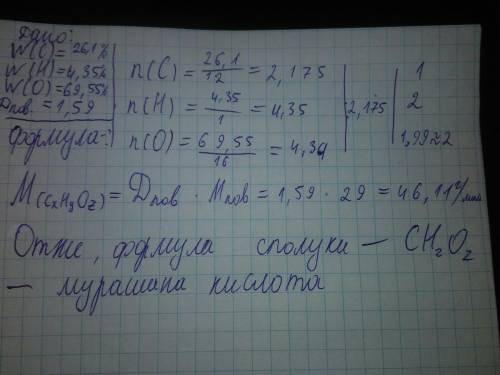 Дано:
W(C)= 26,1%
W(H)=4,35%
W(O)=69,55%
Dпов. =1,59
Формула-?
n(C) = 26,1/12 = 2,175 | 1
n(H) = 4,35/1 = 4,35 | 2,175 | 2
n(O) = 69,55/16 = 4,34 | 1,99≈2
M(CxHyOz) = Dпов · Mпов = 1,59 · 29 = 46,11 г/моль
Отже, формула сполуки — CH₂O₂
— мурашина кислота